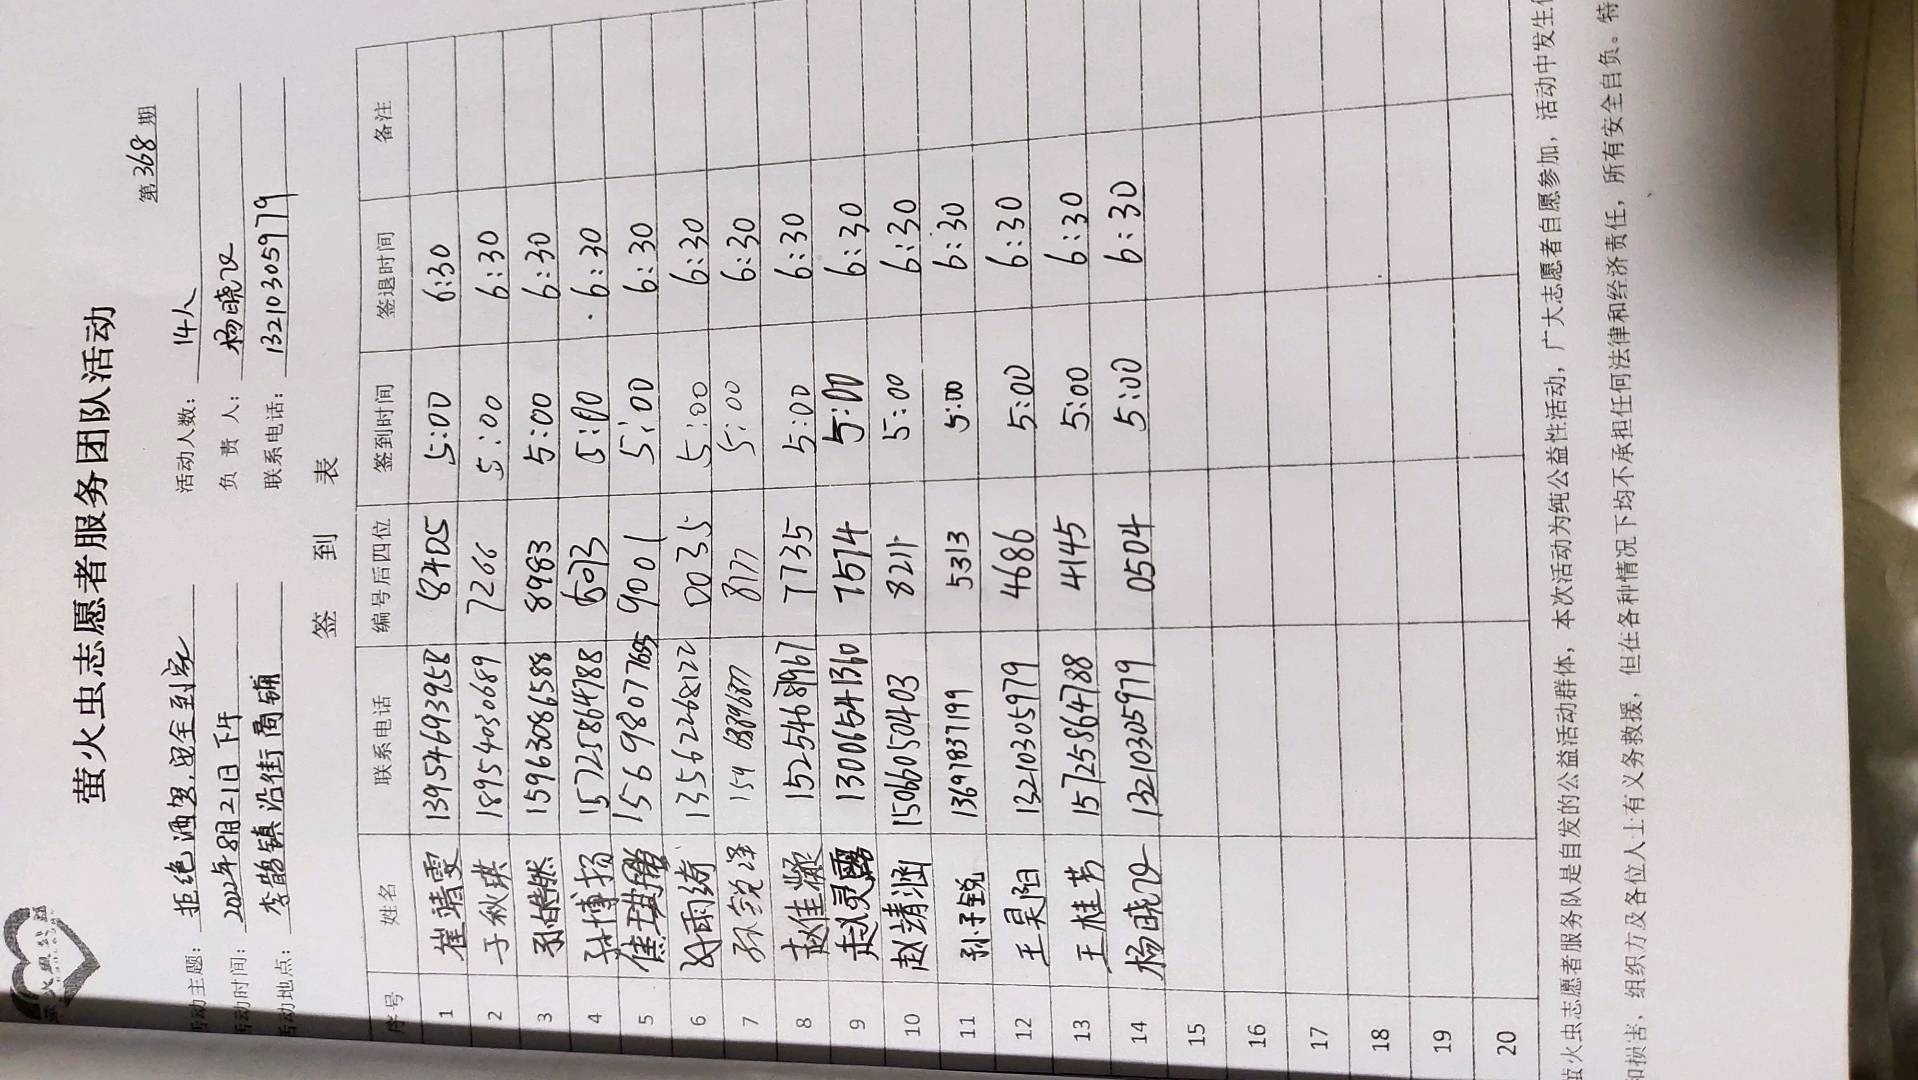 萤火虫志愿者服务团队活动
第368期
活动主题：拒绝酒驾，安全到家 活动人数：14人
活动时间：2022年8月21日下午 负责人：杨晓
活动地点：李鹊镇沿街商铺 联系电话：13210305979
签到表
序号 姓名 联系电话 编号后四位 签到时间 签退时间 备注
1 崔靖雯 13954693958 8405 5:00 6:30
2 于秋琪 18954030689 7266 5:00 6:30
3 孙皓然 15963086588 8983 5:00 6:30
4 孙博扬 15725864788 5:00 6:30
5 焦琪腾 15698077665 9001 5:00 6:30
6 雨绮 13562268122 0035 5:00 6:30
7 孙锐泽 8177 5:00 6:30
8 赵佳 15254681967 7735 5:00 6:30
9 赵灵露 13006541360 7574 5:00 6:30
10 赵靖涵 15066050403 8211 5:00 6:30
11 孙子锐 13697837199 5313 5:00 6:30
12 王昊阳 13210305979 4686 5:00 6:30
13 王桂芳 15725864788 4145 5:00 6:30
14 杨晓 13210305979 0504 5:00 6:30
15
16
17
18
19
20
萤火虫志愿者服务队是自发的公益活动群体，本次活动为纯公益性活动，广大志愿者自愿参加，活动中发生
和损害，组织方及各位人士有义务救援，但在各种情况下均不承担任何法律和经济责任，所有安全自负。特